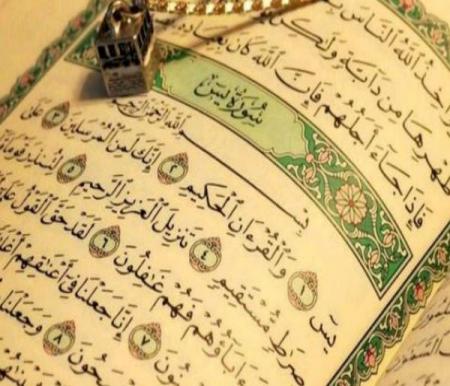 اللَّهُ النَّاسَ
ظَهْرِهَا مِن دَابَّةٍ وَلَٰكِن
فَإِذَا جَاءَ أَجَلُهُمْ فَإِنَّ اللَّهَ كَانَ
سُورَةُ يسٓ
بِسْمِ اللَّهِ الرَّحْمَٰنِ الرَّحِيمِ
يسٓ ١ وَالْقُرْءَانِ الْحَكِيمِ ٢ إِنَّكَ لَمِنَ الْمُرْسَلِينَ ٣ عَلَىٰ
صِرَٰطٍ مُّسْتَقِيمٍ ٤ تَنزِيلَ الْعَزِيزِ الرَّحِيمِ ٥ لِتُنذِرَ قَوْمًا مَّا
ءَابَاؤُهُمْ فَهُمْ غَٰفِلُونَ ٦ لَقَدْ حَقَّ الْقَوْلُ عَلَىٰ
٧ إِنَّا جَعَلْنَا فِي أَعْنَٰقِهِمْ
٨ وَجَعَلْنَا